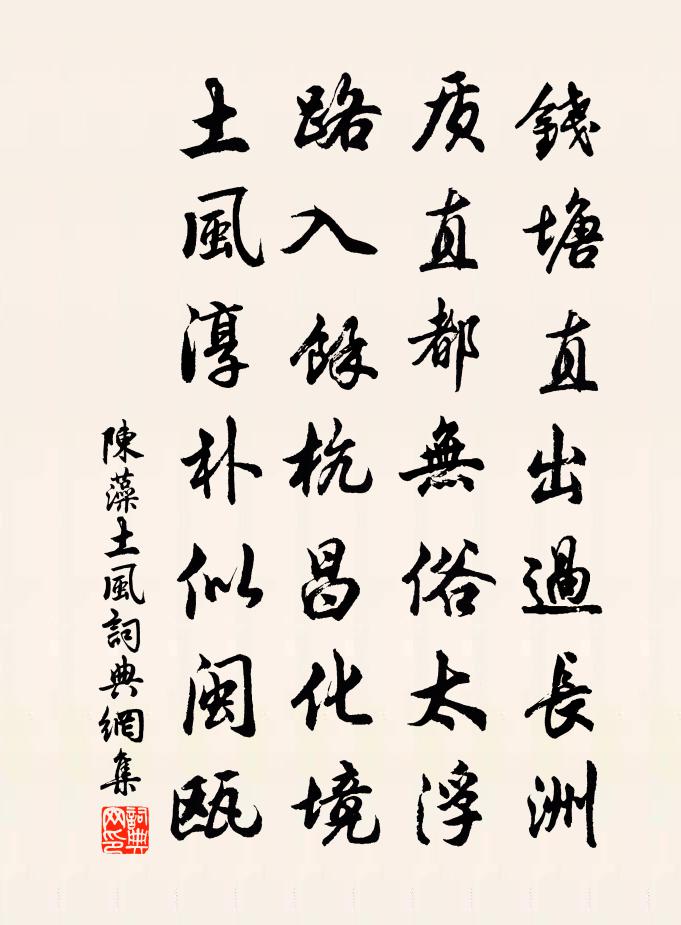 錢塘直出過長洲
质直都無俗太浮
路入餘杭昌化境
土風淳朴似闽瓯
陳藻土風詞典網集
詞典網印